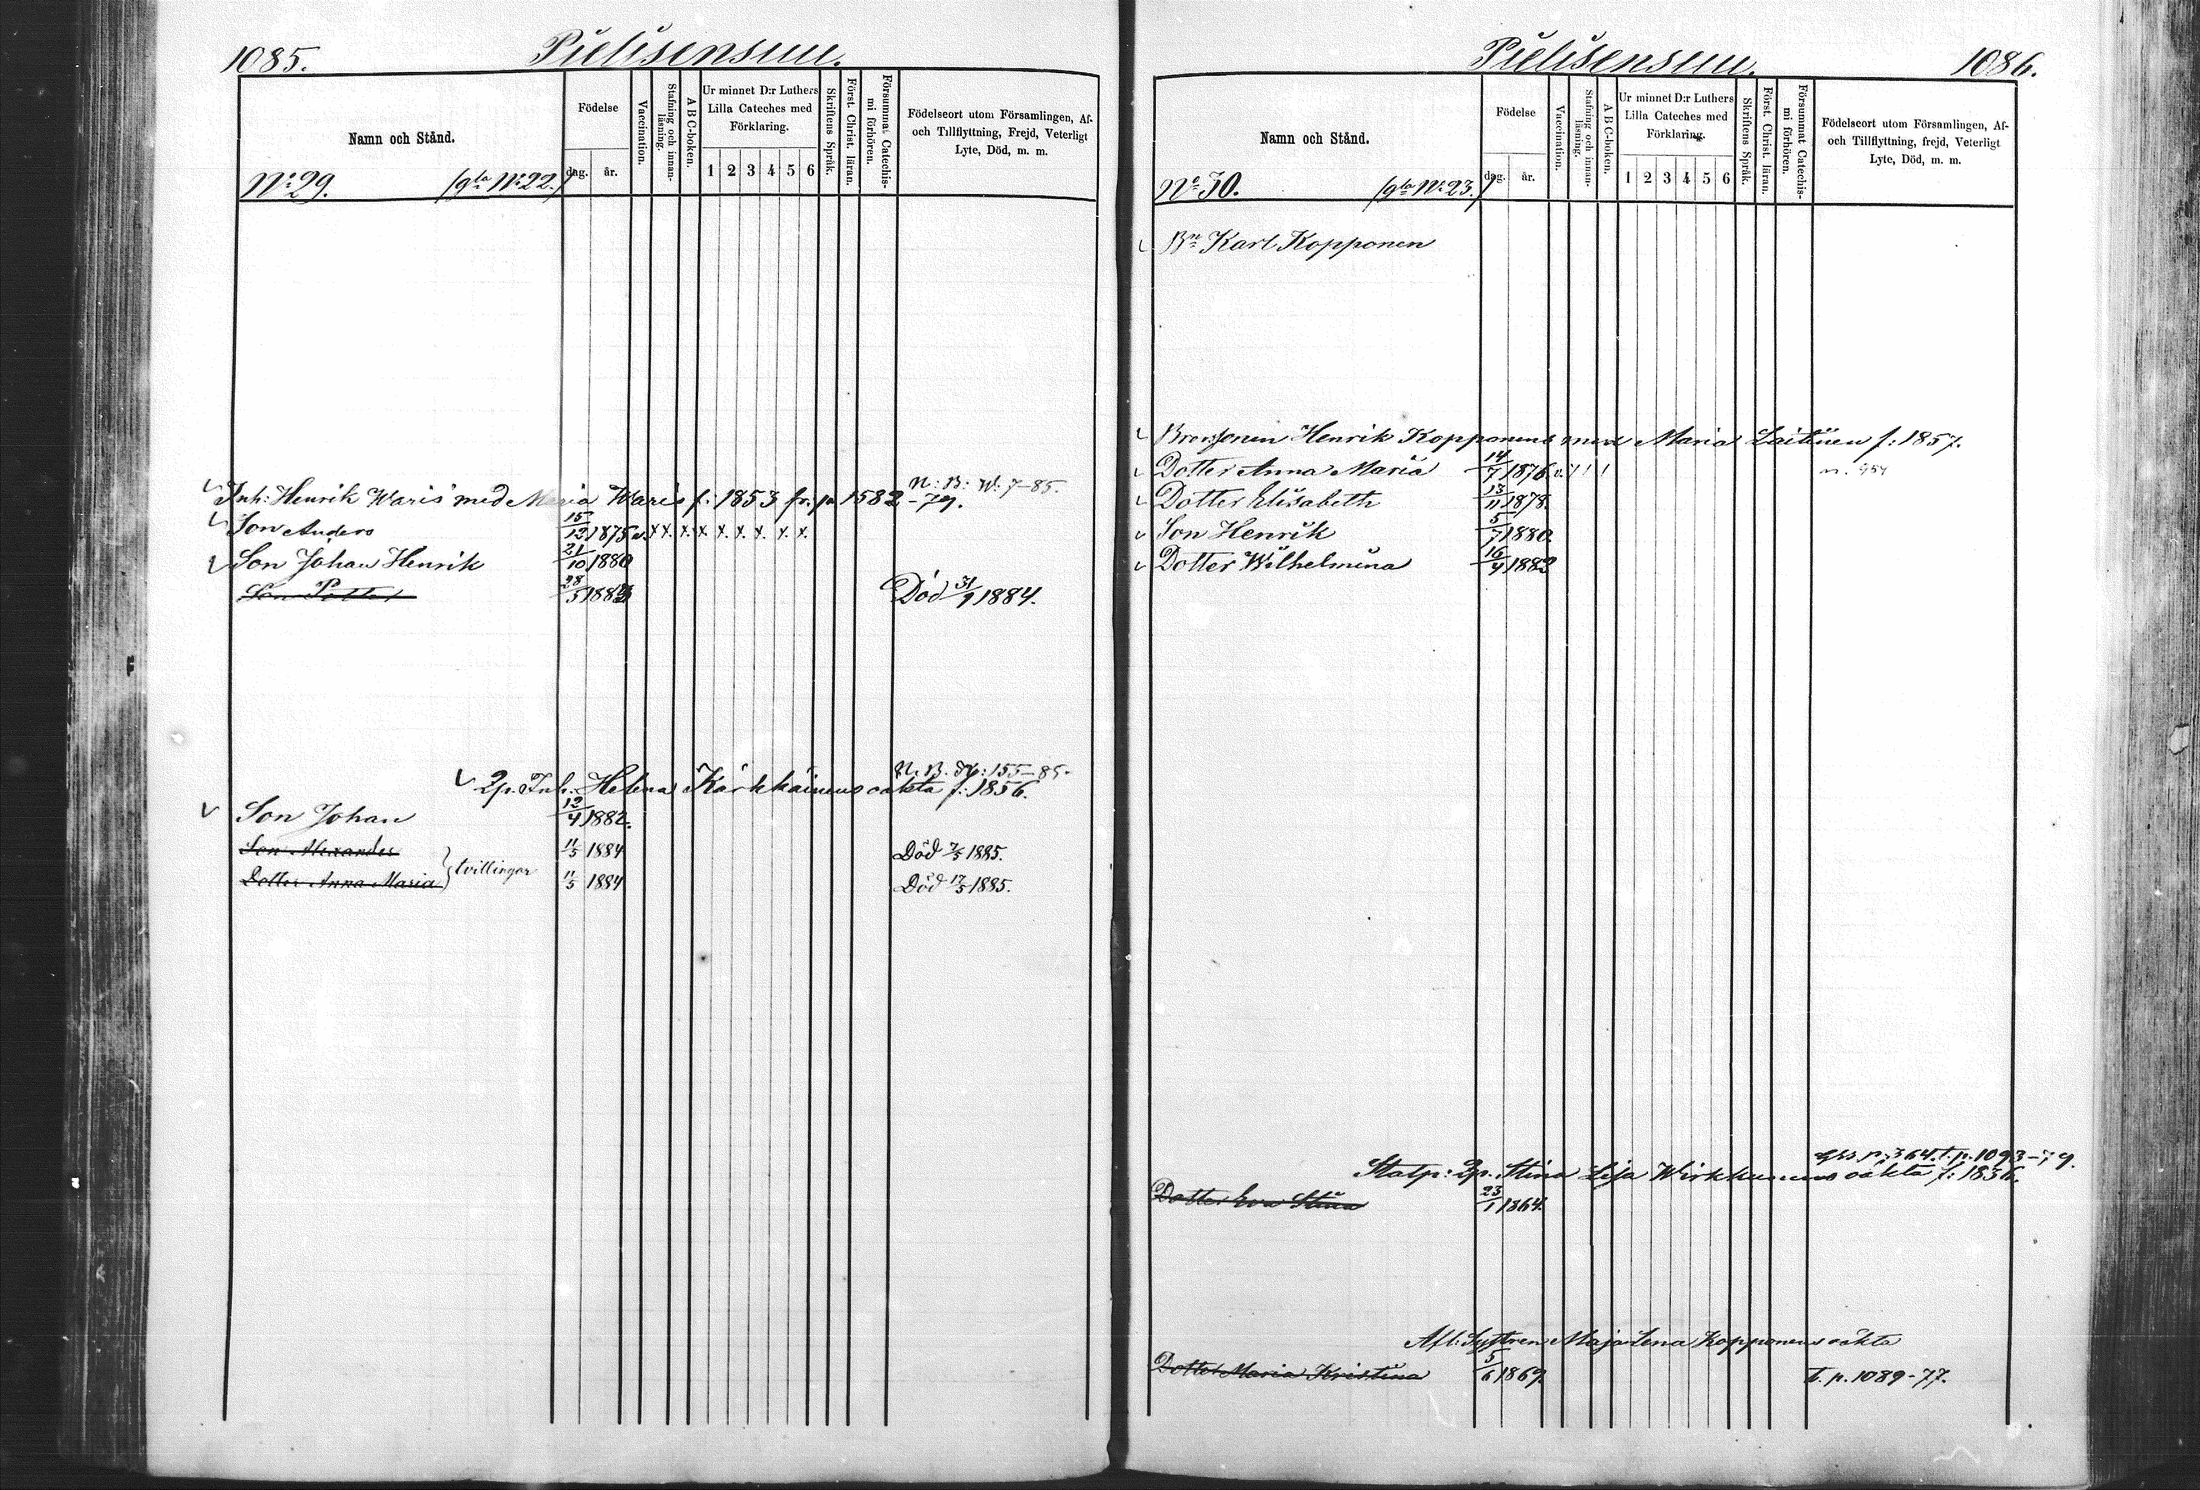 1085.
Pielisensuu.
Namn och Stånd.
Födelse
dag.
år.
Vaccination.
Stafning och innan-läsning.
A B C-boken.
Ur minnet D:r Luthers
Lilla Cateches med
Förklaring.
1 2 3 4 5 6
Skriftens Språk.
Först. Christ. läran.
Försummat Catechis-mi förhören.
Födelseort utom Församlingen, Af-
och Tillflyttning, Frejd, Veterligt
Lyte, Död, m. m.
No: 29. (gla No: 22.)
N: B: W: 7-85.
Inh: Henrik Waris med Maria Waris f: 1853 fr. p. 1582-79.
Son Anders 15/12 1875 v. x x. x. x. x. x. x. x. x.
Son Johan Henrik 21/10 1880
Son Petter 28/5 1883 Död 31/1 1884.
N. B. K: 155-85.
2p. Inh. Helena Kärkkäinens oäkta f: 1856.
Son Johan 12/4 1882.
Son Alexander 11/5 1884 Död 7/5 1885.
tvillingar
Dotter Anna Maria 11/5 1884 Död 17/5 1885.
Pielisensuu.
1086.
Namn och Stånd.
Födelse
dag.
år.
Vaccination.
Stafning och innan-läsning.
A B C-boken.
Ur minnet D:r Luthers
Lilla Cateches med
Förklaring.
1 2 3 4 5 6
Skriftens Språk.
Först. Christ. läran.
Försummat Catechis-mi förhören.
Födelseort utom Församlingen, Af-
och Tillflyttning, frejd, Veterligt
Lyte, Död, m. m.
No: 30. (gla No: 23.)
Bn Karl Kopponen
Brorsonen Henrik Kopponens med Maria Laitinen f: 1857.
Dotter Anna Maria 14/7 1876. v. / ! ! !
Dotter Elisabeth 13/11 1878.
Son Henrik 5/7 1880.
Dotter Wilhelmina 16/4 1883
p. 364. T. p. 1093-79.
Statp: 2p. Stina Lisa Wirkkunens oäkta f: 1836.
Dotter Eva Stina 23/1 1864.
Afl: Systren Maja Lena Kopponens oäkta
Dotter Maria Kristina 5/6 1869. T. p. 1089-77.